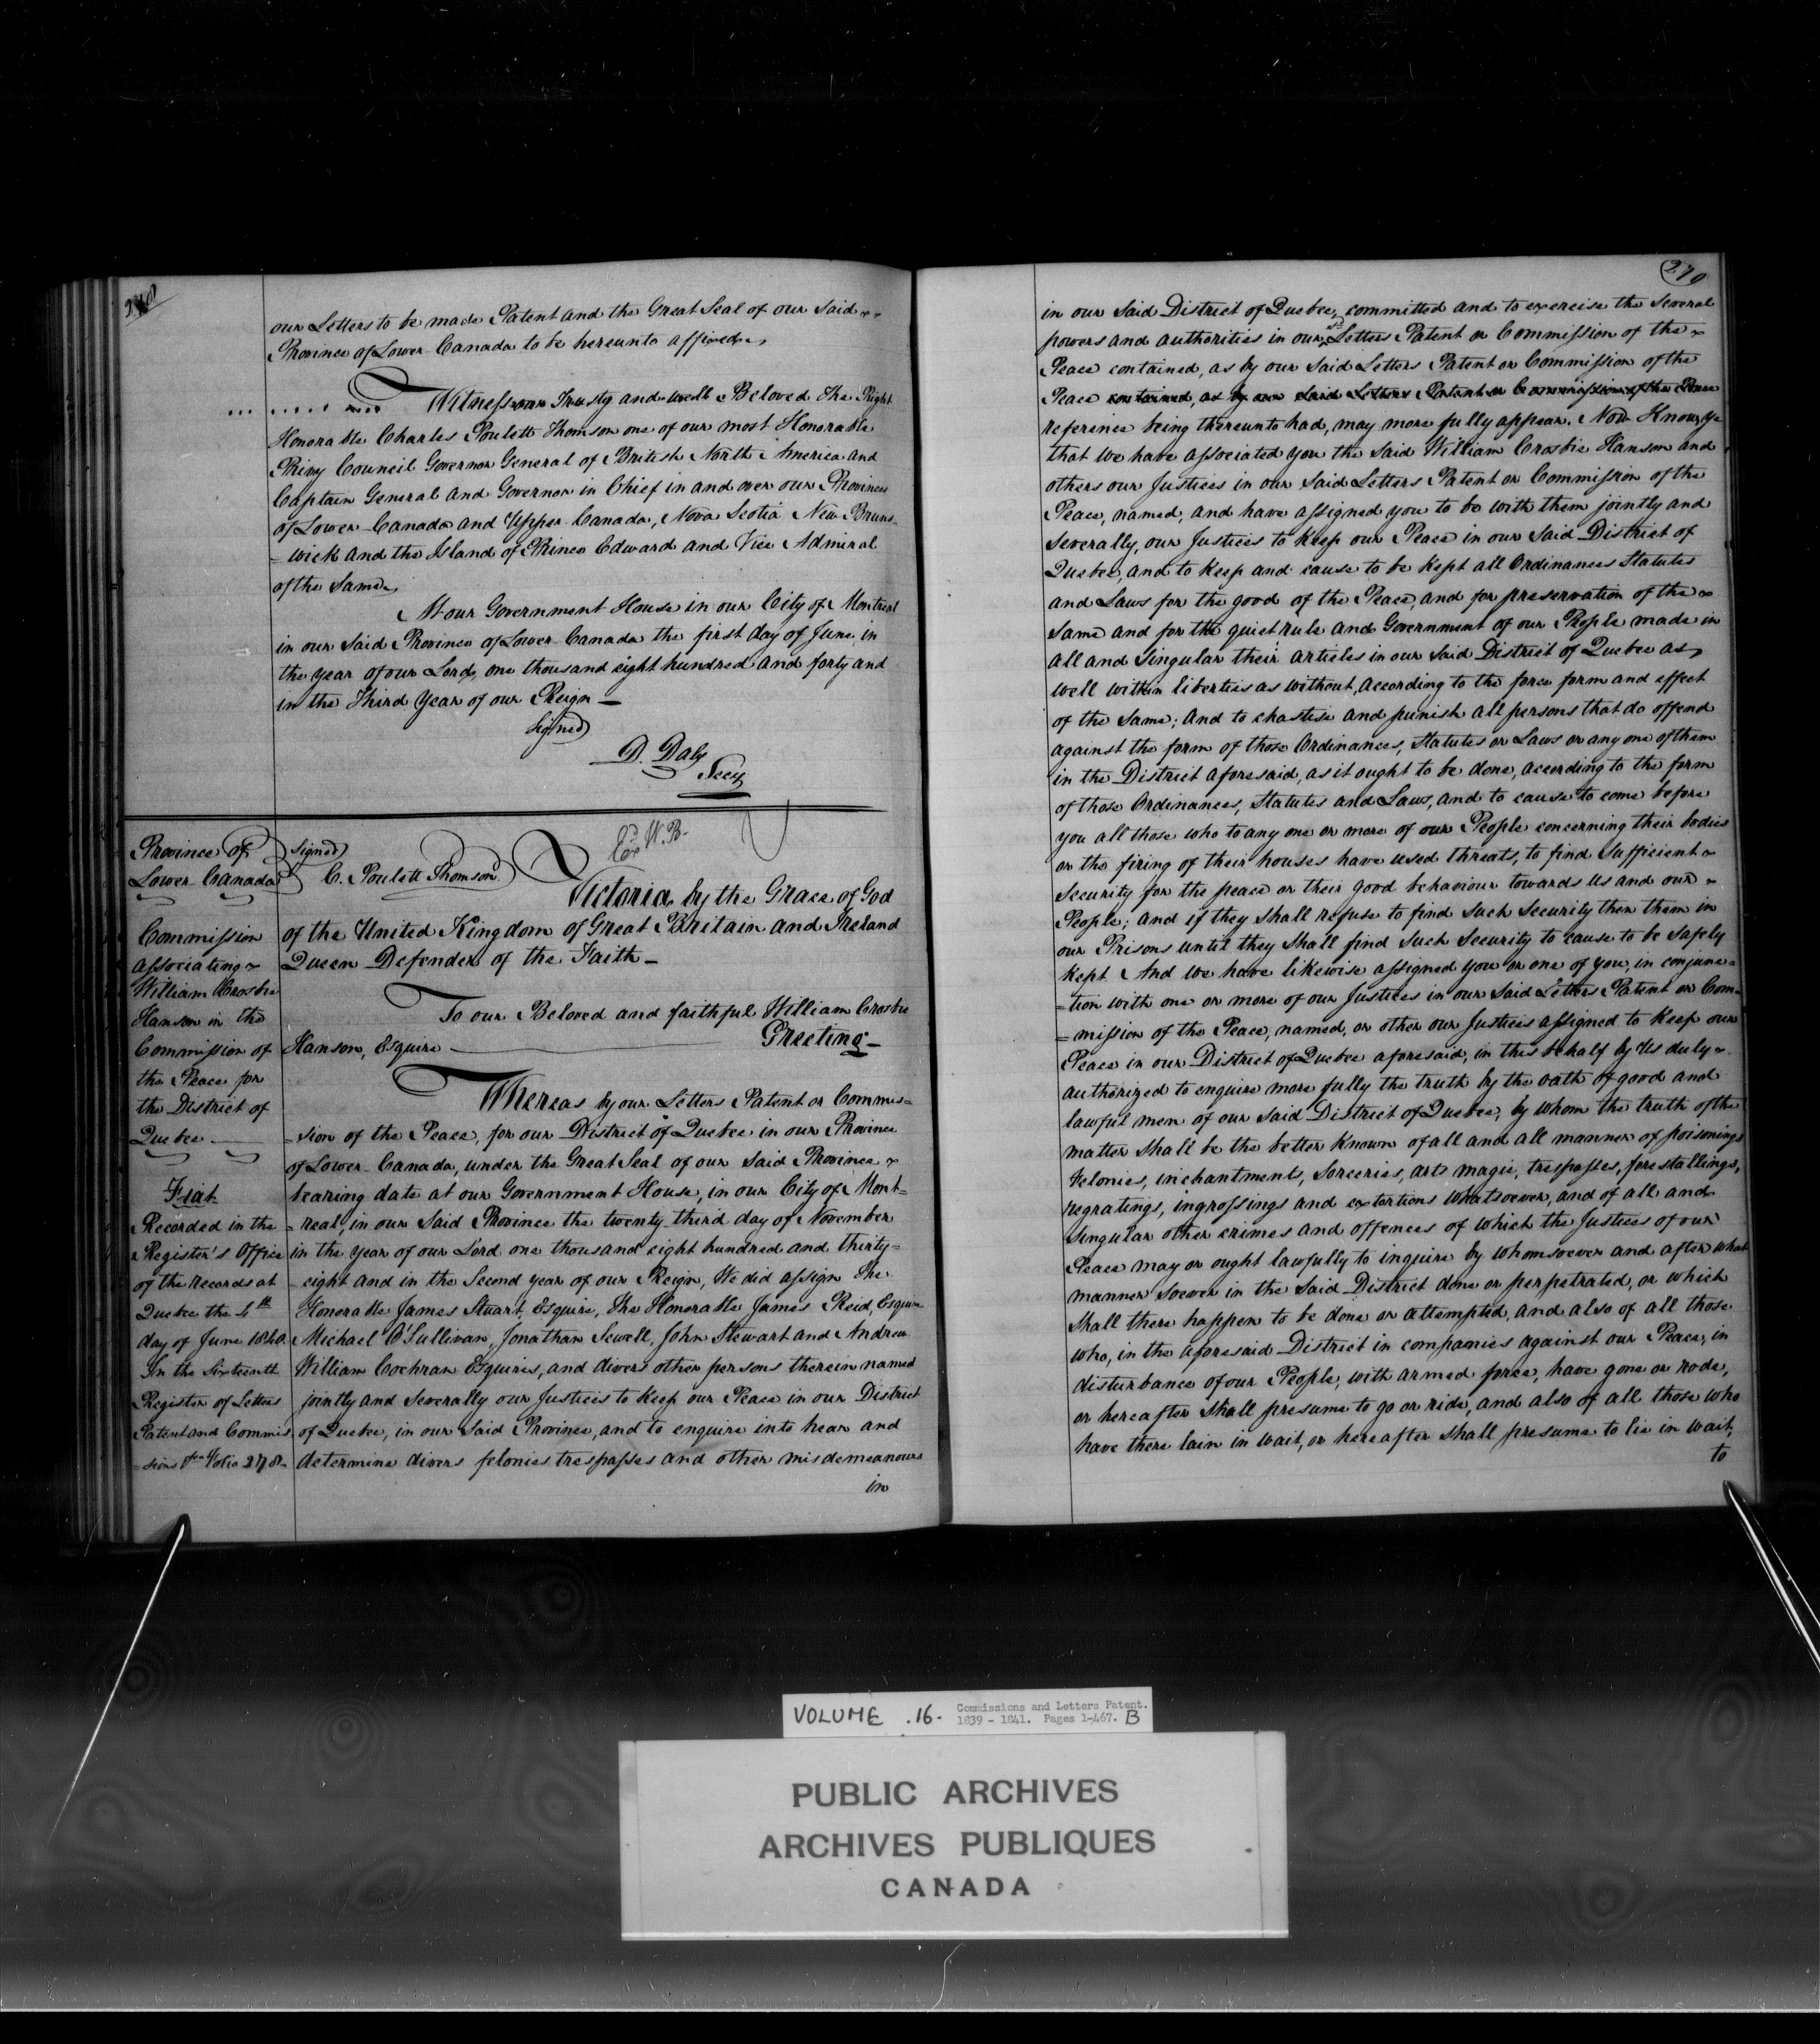 278
our Letters to be made Patent and the Great Seal of our Said
Province of Lower-Canada to be hereunto affixed
Witness our Trusty and well Beloved The Right
Honorable Charles Poulett Thomson one of our most Honorable
Privy Council Governor General of British North America and
Captain General and Governor in Chief in and over our Provinces
of Lower-Canada and Upper-Canada, Nova Scotia New-Bruns-
=wick and the Island of Prince Edward and Vice Admiral
of the Same
At our Government House in our City of Montreal
in our Said Province of Lower-Canada the first day of June, in
the year of our Lord, one thousand eight hundred and forty and
in the Third Year of our Reign —
Signed
D. Daly
Secy
Ex W. B.
Province of
Lower-Canada
Signed
C. Poulett Thomson
Victoria by the Grace of God
of the United Kingdom of Great Britain and Ireland
Queen Defender of the Faith —
Commission
associating
William Crosbie
Hanson in the
Commission of
the Peace for
the District of
Quebec —
Fiat
Recorded in the
Register's Office
of the records at
Quebec the 4th
day of June 1840.
In the Sixteenth
Register of Letters
Patent and Commis
=sions Folio 278
To our Beloved and faithful William Crosbie
Hanson, Esquire — Greeting —
Whereas by our Letters Patent or Commis=
=sion of the Peace, for our District of Quebec in our Province
of Lower-Canada, under the Great Seal of our Said Province
bearing date at our Government House, in our City of Mont=
=real, in our Said Province the twenty-third day of November
in the year of our Lord one thousand eight hundred and thirty=
=eight and in the Second year of our Reign, We did assign The
Honorable James Stuart, Esquire, The Honorable James Reid, Esquire
Michael O'Sullivan, Jonathan Sewell, John Stewart and Andrew
William Cochran Esquires, and divers other persons therein named
jointly and Severally our Justices to Keep our Peace in our District
of Quebec, in our Said Province, and to enquire into hear and
determine divers felonies trespasses and other misdemeanours
in
279
in our Said District of Quebec, committed and to exercise the Several
powers and authorities in our sd Letters Patent or Commission of the
Peace contained, as by our Said Letters Patent or Commission of the
Peace contained, as by our Said Letters Patent or Commission of the Peace
reference being thereunto had, may more fully appear. Now Know Ye
that We have associated you the Said William Crosbie Hanson and
others our Justices in our Said Letters Patent or Commission of the
Peace, named, and have assigned you to be with them jointly and
Severally, our Justices to Keep our Peace in our Said District of
Quebec, and to Keep and cause to be Kept all Ordinances Statutes
and Laws for the good of the Peace, and for preservation of the
Same and for the quiet rule and Government of our People made in
all and Singular their articles in our Said District of Quebec as
well within liberties as without, according to the force form and effect
of the Same; And to chastise and punish all persons that do offend
against the form of those Ordinances, Statutes or Laws or any one of them
in the District aforesaid, as it ought to be done, according to the form
of those Ordinances, Statutes and Laws, and to cause to come before
you all those who to any one or more of our People concerning their bodies
or the firing of their houses have used threats, to find Sufficient
Security for the peace or their good behaviour towards Us and our
People; and if they Shall refuse to find Such Security then them in
our Prisons until they Shall find Such Security to cause to be Safely
Kept. And We have likewise assigned you or one of you, in conjunc=
=tion with one or more of our Justices in our Said Letters Patent or Com=
=mission of the Peace, named, or other our Justices assigned to Keep our
Peace in our District of Quebec aforesaid, in this behalf by Us duly
authorized to enquire more fully the truth by the oath of good and
lawful men of our Said District of Quebec, by whom the truth of the
matter Shall be the better Known of all and all manner of poisonings
Felonies, inchantments, Sorceries, arts magic, trespasses, forestallings,
regratings, ingrossings and extortions whatsoever, and of all and
Singular other crimes and offences of which the Justices of our
Peace may or ought lawfully to inquire by whomsoever and after what
manner Soever in the Said District done or perpetrated, or which
Shall there happen to be done or attempted, and also of all those
who, in the aforesaid District in companies against our Peace, in
disturbance of our People, with armed force, have gone or rode,
or hereafter Shall presume to go or ride, and also of all those who
have there lain in wait, or hereafter Shall presume to lie in wait,
to
VOLUME .16. Commissions and Letters Patent.
1839 - 1841. Pages 1-467. B
PUBLIC ARCHIVES
ARCHIVES PUBLIQUES
CANADA